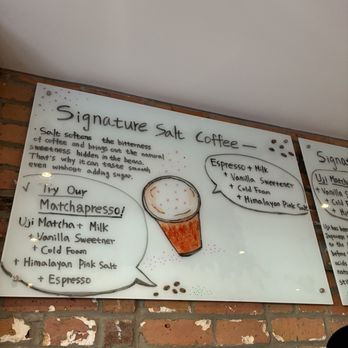 Signature Salt Coffee —
• Salt softens the bitterness
of coffee and brings out the natural
sweetness hidden in the beans.
That's why it can taste smooth
even without adding sugar.
Espresso + Milk
+ Vanilla Sweetener
+ Cold Foam
+ Himalayan Pink Salt
✓ Try Our
Matchapresso!
Uji Matcha + Milk
+ Vanilla Sweetner
+ Cold Foam
+ Himalayan Pink Salt
+ Espresso
Sign
Uji Ma
+ Va
+ C
+ H